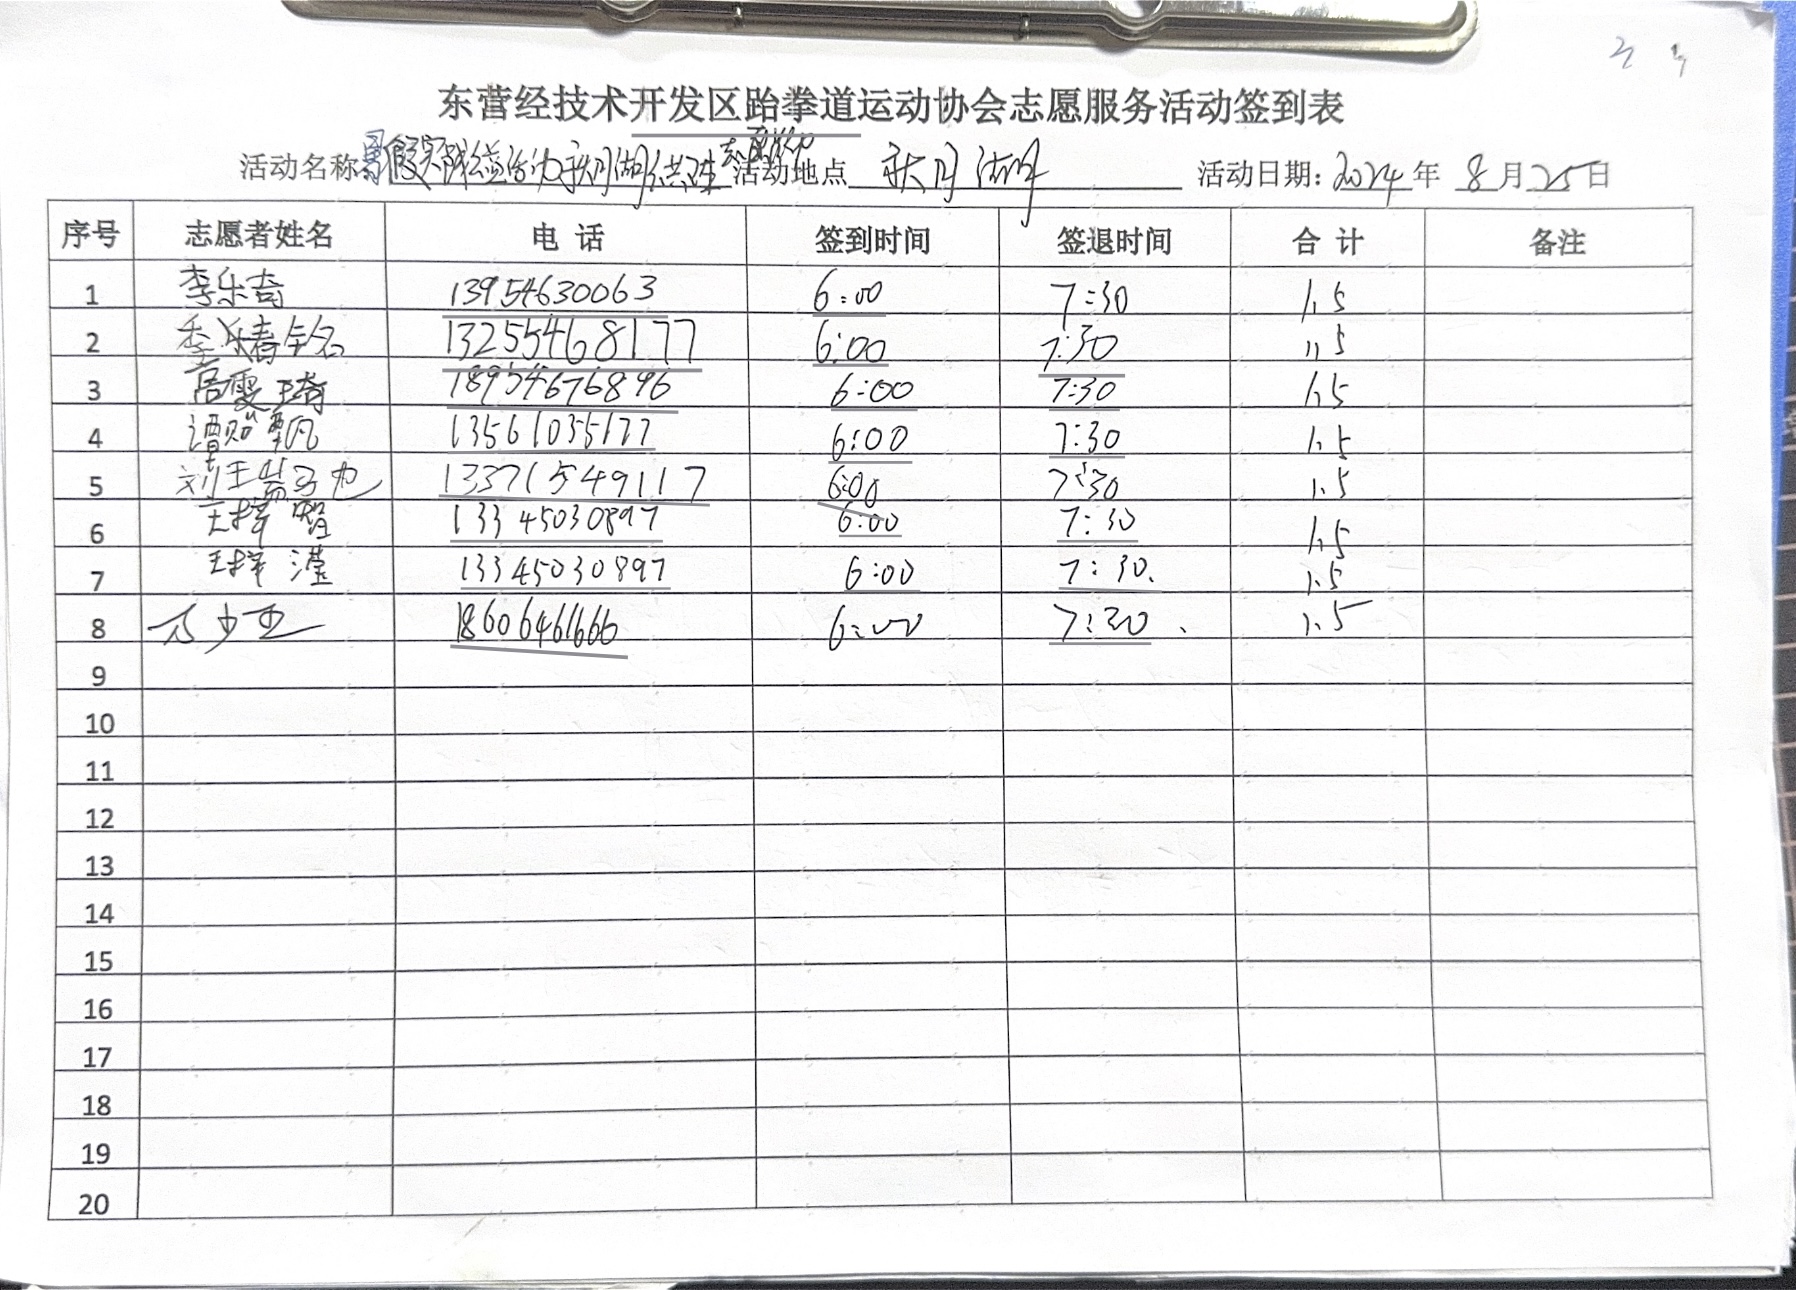 东营经技术开发区跆拳道运动协会志愿服务活动签到表
活动名称 暑假实践公益活动秋月湖 志愿服务 活动地点 秋月湖 活动日期：2024年 8月25日
序号 志愿者姓名 电 话 签到时间 签退时间 合 计 备注
1 李乐奇 13954630063 6:00 7:30 1.5
2 季乐春 13255468177 6:00 7:30 1.5
3 18954676896 6:00 7:30 1.5
4 13561035177 6:00 7:30 1.5
5 刘 13371549117 6:00 7:30 1.5
6 王梓 13345030897 6:00 7:30 1.5
7 王梓滢 13345030897 6:00 7:30. 1.5
8 18606461666 6:00 7:30. 1.5
9
10
11
12
13
14
15
16
17
18
19
20